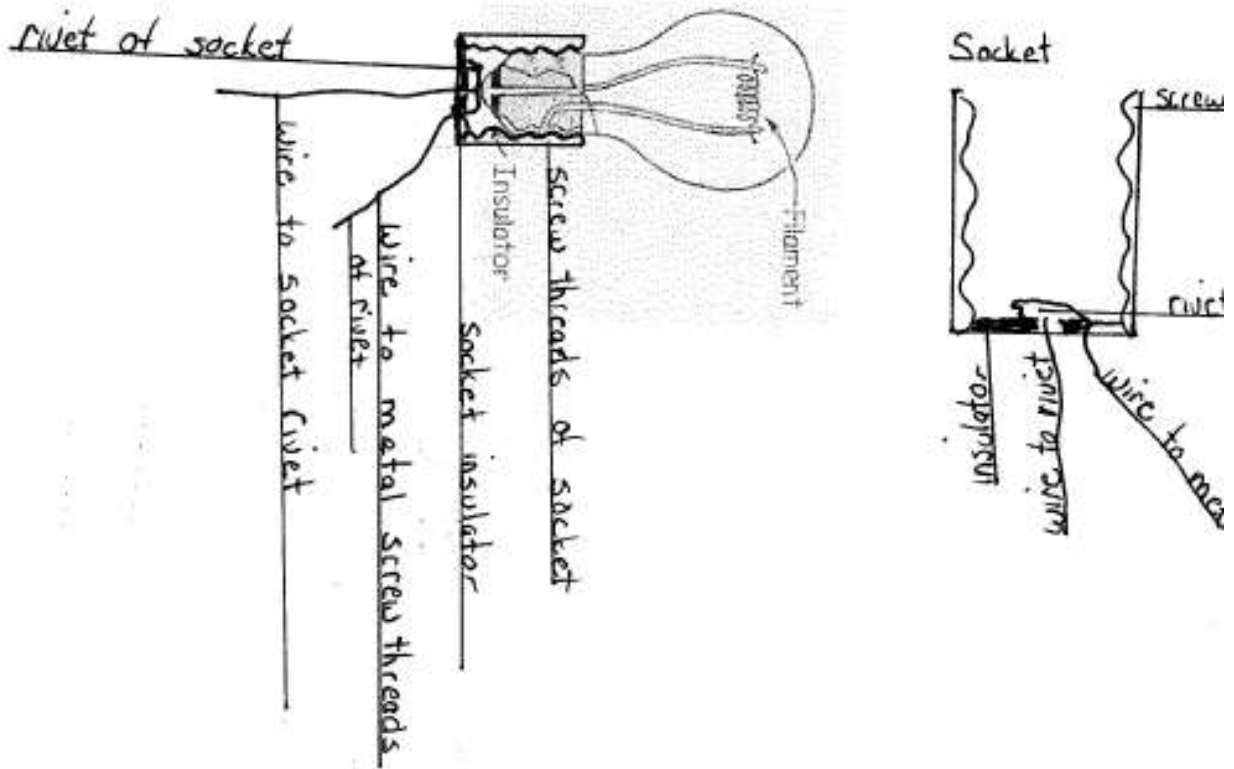 rivet of socket
wire to socket rivet
of rivet
wire to metal screw threads
Socket insulator
Insulator
screw threads of socket
Filament
Socket
screw
rivet
insulator
wire to rivet
wire to me